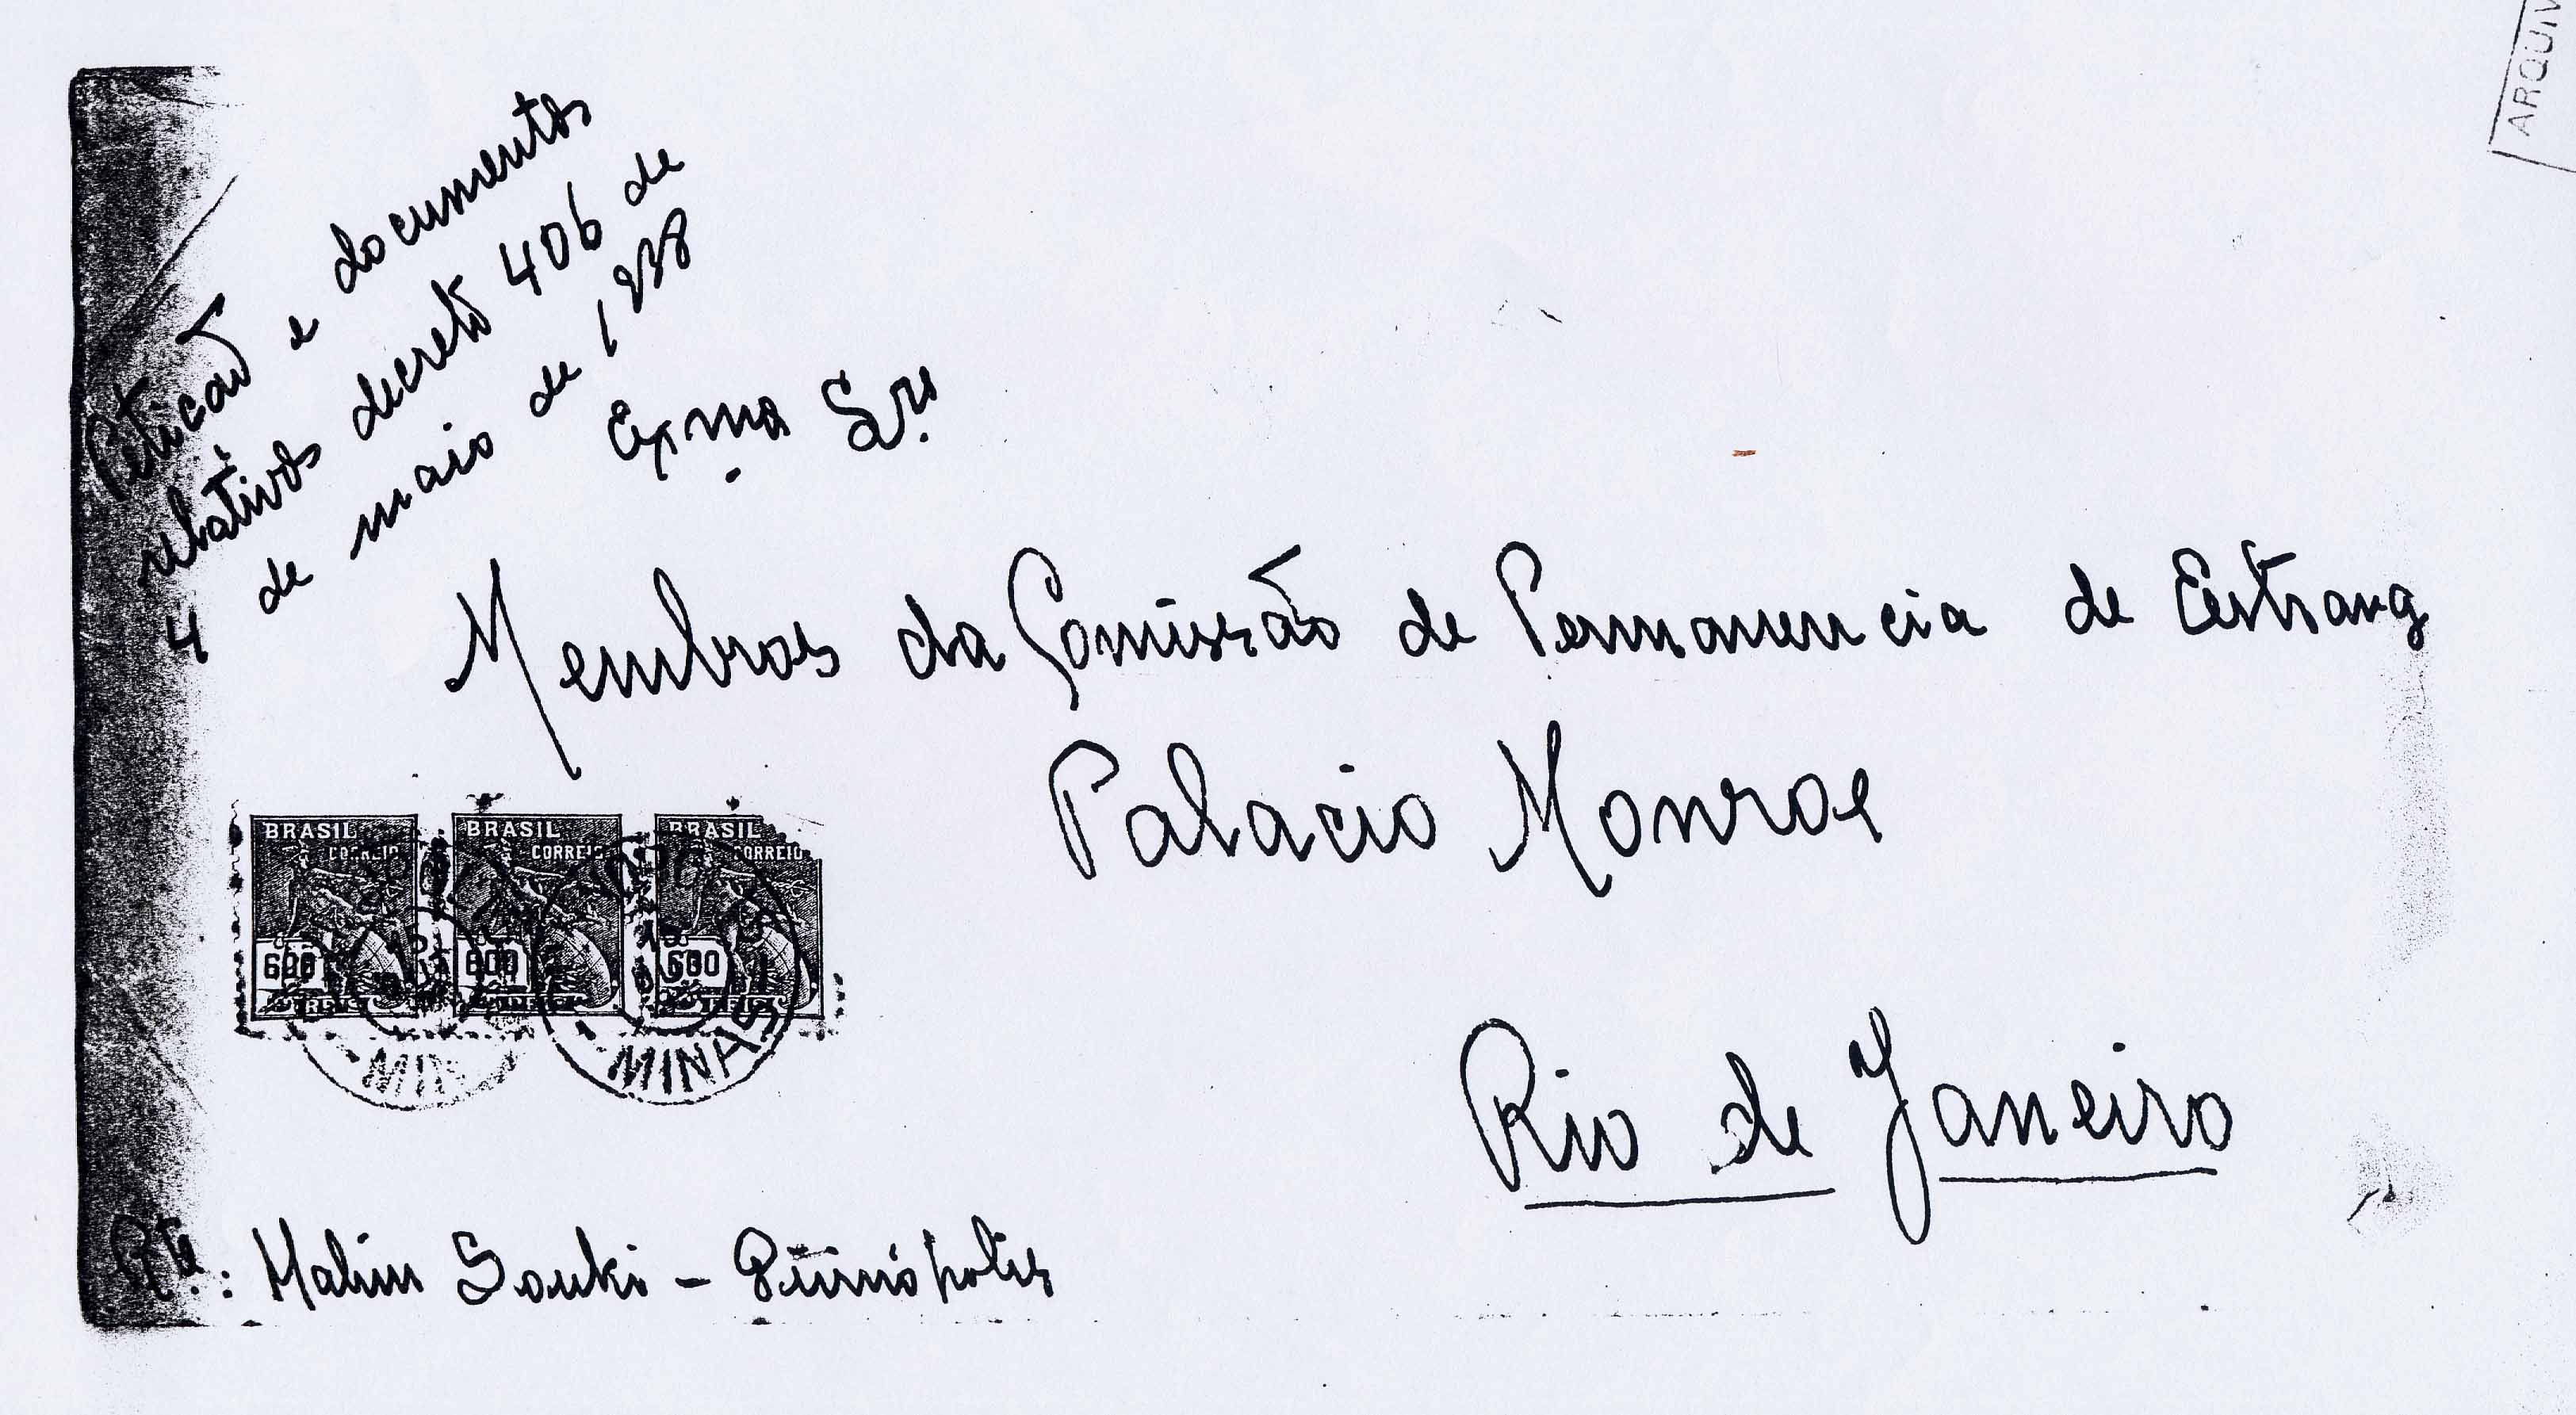 Petição e documentos
relativos decreto 406 de
4 de maio de 1938
Exmo Srs.
Membros da Comissão de Permanencia de Estrang
Palacio Monroe
Rio de Janeiro
BRASIL BRASIL BRASIL
CORREIO CORREIO CORREIO
600 600 600
MINAS
Rte.: Halim Souki - Pirinópolis
ARQUIV